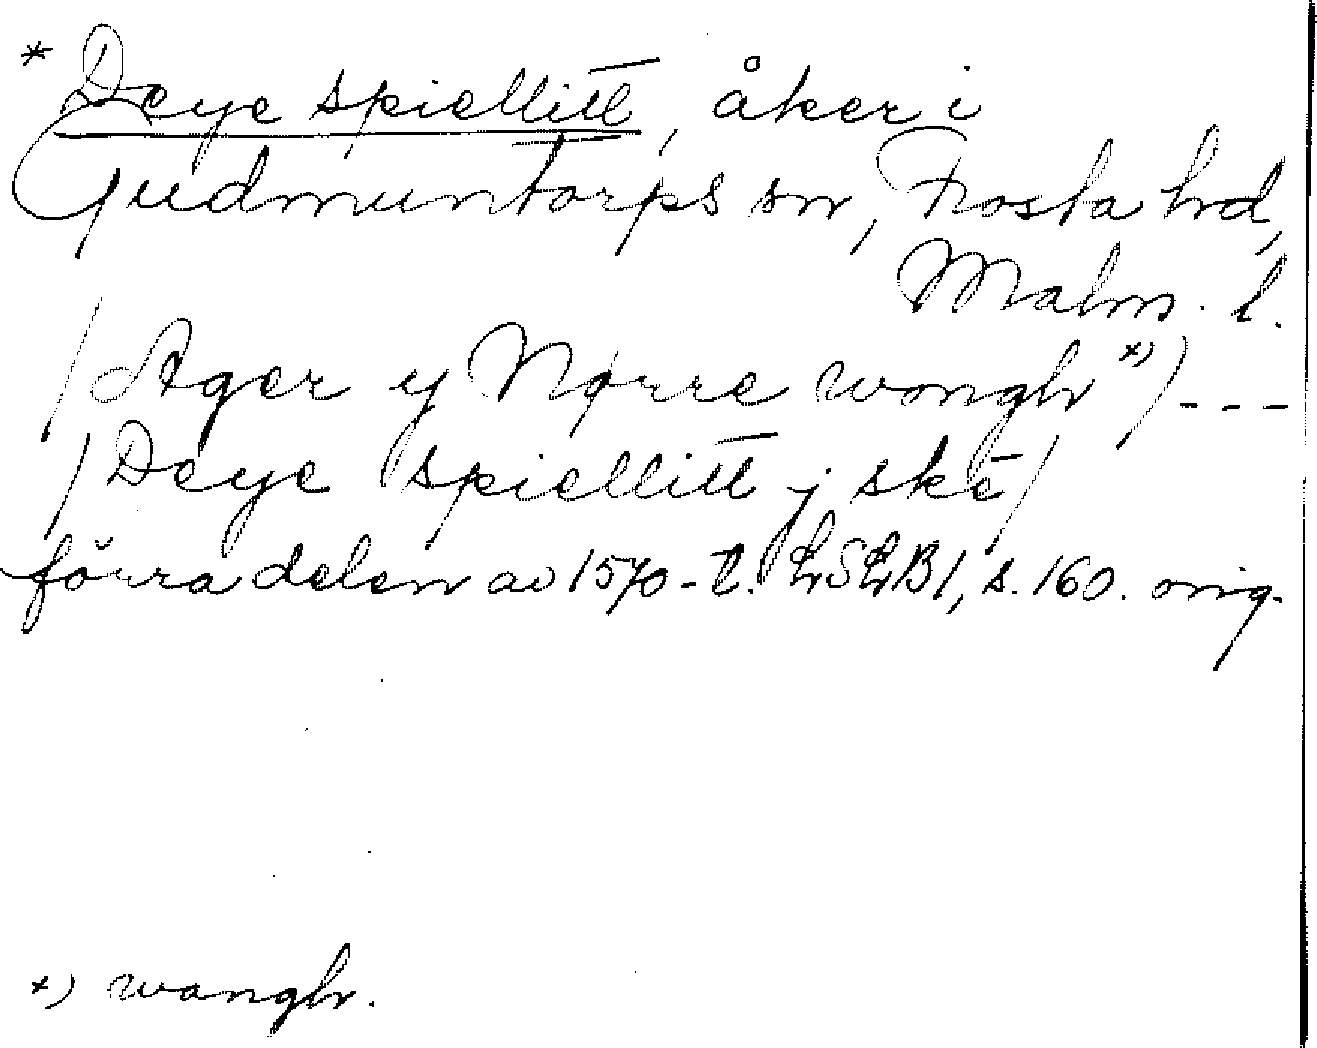 * Deye spiellitt, åker i
Gudmuntorps sn, Frosta hrd,
Malm. l.
/Ager y Nørre wongh x)/---
/Deye spiellitt j skē/
förra delen av 1570-t. LSLB1, s. 160. orig.
x) wangh.